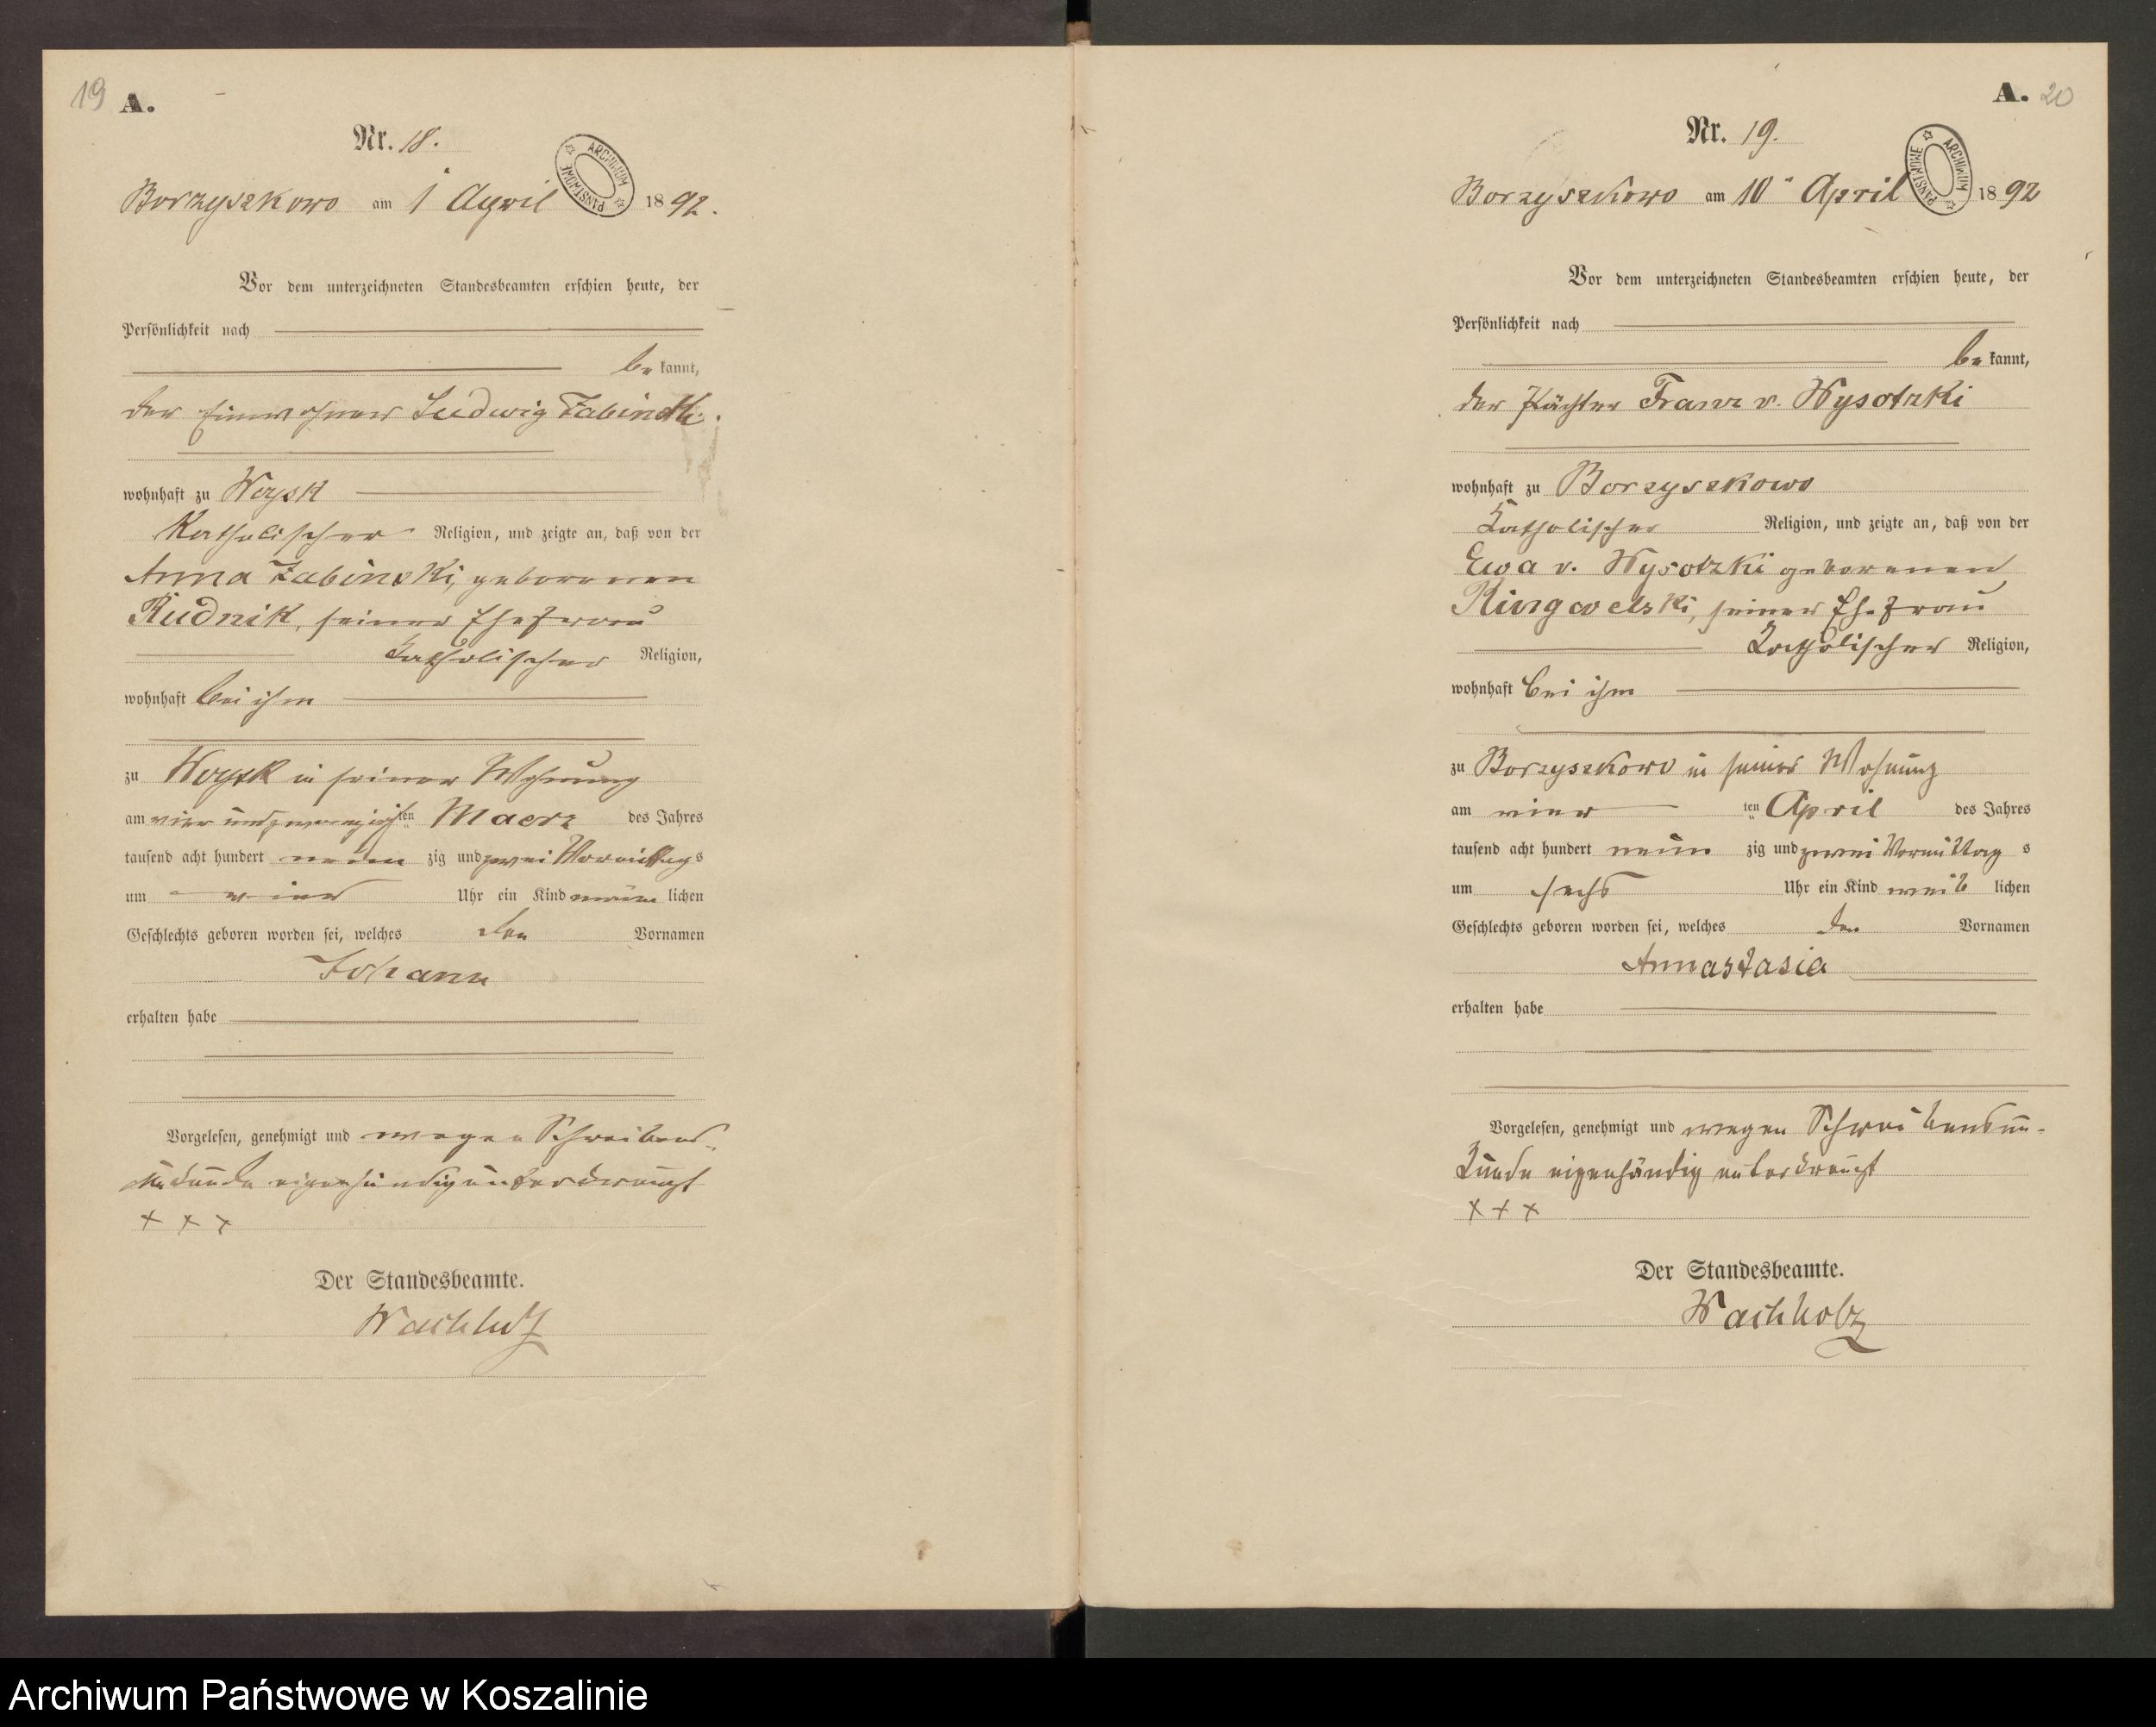 19 A.
Nr. 18.
Borzyszkowo am 1 April 1892.
ARCHIWUM PAŃSTWOWE
Vor dem unterzeichneten Standesbeamten erschien heute, der
Persönlichkeit nach
bekannt,
der Einwohner Ludwig
wohnhaft zu Woysk
Katholischer Religion, und zeigte an, daß von der
Anna Zabinski, geborenen
Rudnik, seiner Ehefrau
Katholischer Religion,
wohnhaft bei ihm
zu Woysk in seiner Wohnung
am vier und zwanzigsten Maerz des Jahres
tausend acht hundert neun zig und zwei Vormittags
um vier Uhr ein Kind männlichen
Geschlechts geboren worden sei, welches den Vornamen
Johann
erhalten habe
Vorgelesen, genehmigt und wegen Schreibens-
unkunde eigenhändig unterkreuzt
+ + +
Der Standesbeamte.
Wachholz
A. 20
Nr. 19.
Borzyszkowo am 10 April 1892
ARCHIWUM PAŃSTWOWE
Vor dem unterzeichneten Standesbeamten erschien heute, der
Persönlichkeit nach
bekannt,
der Pächter Franz v. Wysotzki
wohnhaft zu Borzyszkowo
Katholischer Religion, und zeigte an, daß von der
Ewa v. Wysotzki geborenen
Ringwelski, seiner Ehefrau
Katholischer Religion,
wohnhaft bei ihm
zu Borzyszkowo in seiner Wohnung
am vier ten April des Jahres
tausend acht hundert neun zig und zwei Vormittag s
um sechs Uhr ein Kind weib lichen
Geschlechts geboren worden sei, welches den Vornamen
Annastasia
erhalten habe
Vorgelesen, genehmigt und wegen Schreibensun-
kunde eigenhändig unterkreuzt
+ + +
Der Standesbeamte.
Wachholz
Archiwum Państwowe w Koszalinie